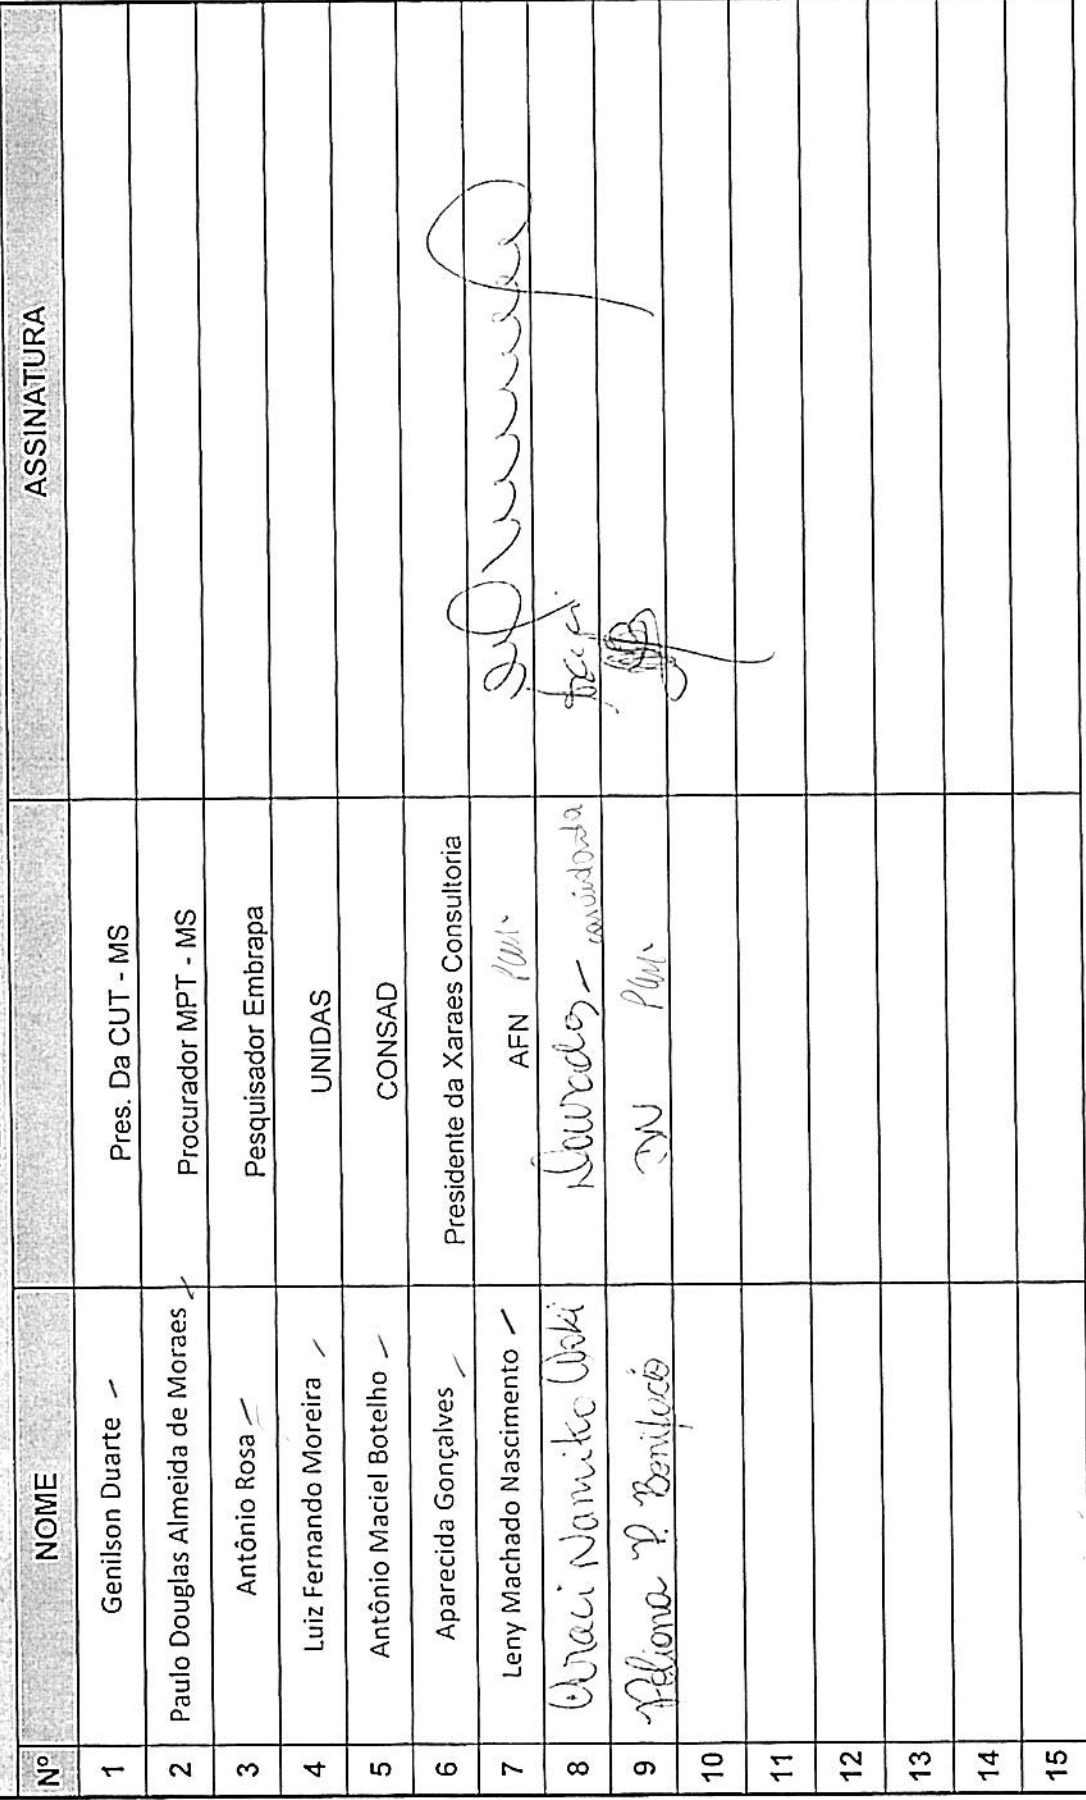 Nº NOME ASSINATURA
1 Genilson Duarte Pres. Da CUT - MS
2 Paulo Douglas Almeida de Moraes Procurador MPT - MS
3 Antônio Rosa Pesquisador Embrapa
4 Luiz Fernando Moreira UNIDAS
5 Antônio Maciel Botelho CONSAD
6 Aparecida Gonçalves Presidente da Xaraes Consultoria
7 Leny Machado Nascimento AFN
8 Araci Namiko Dourados - convidada Araci
9 P. Bonifácio DN
10
11
12
13
14
15